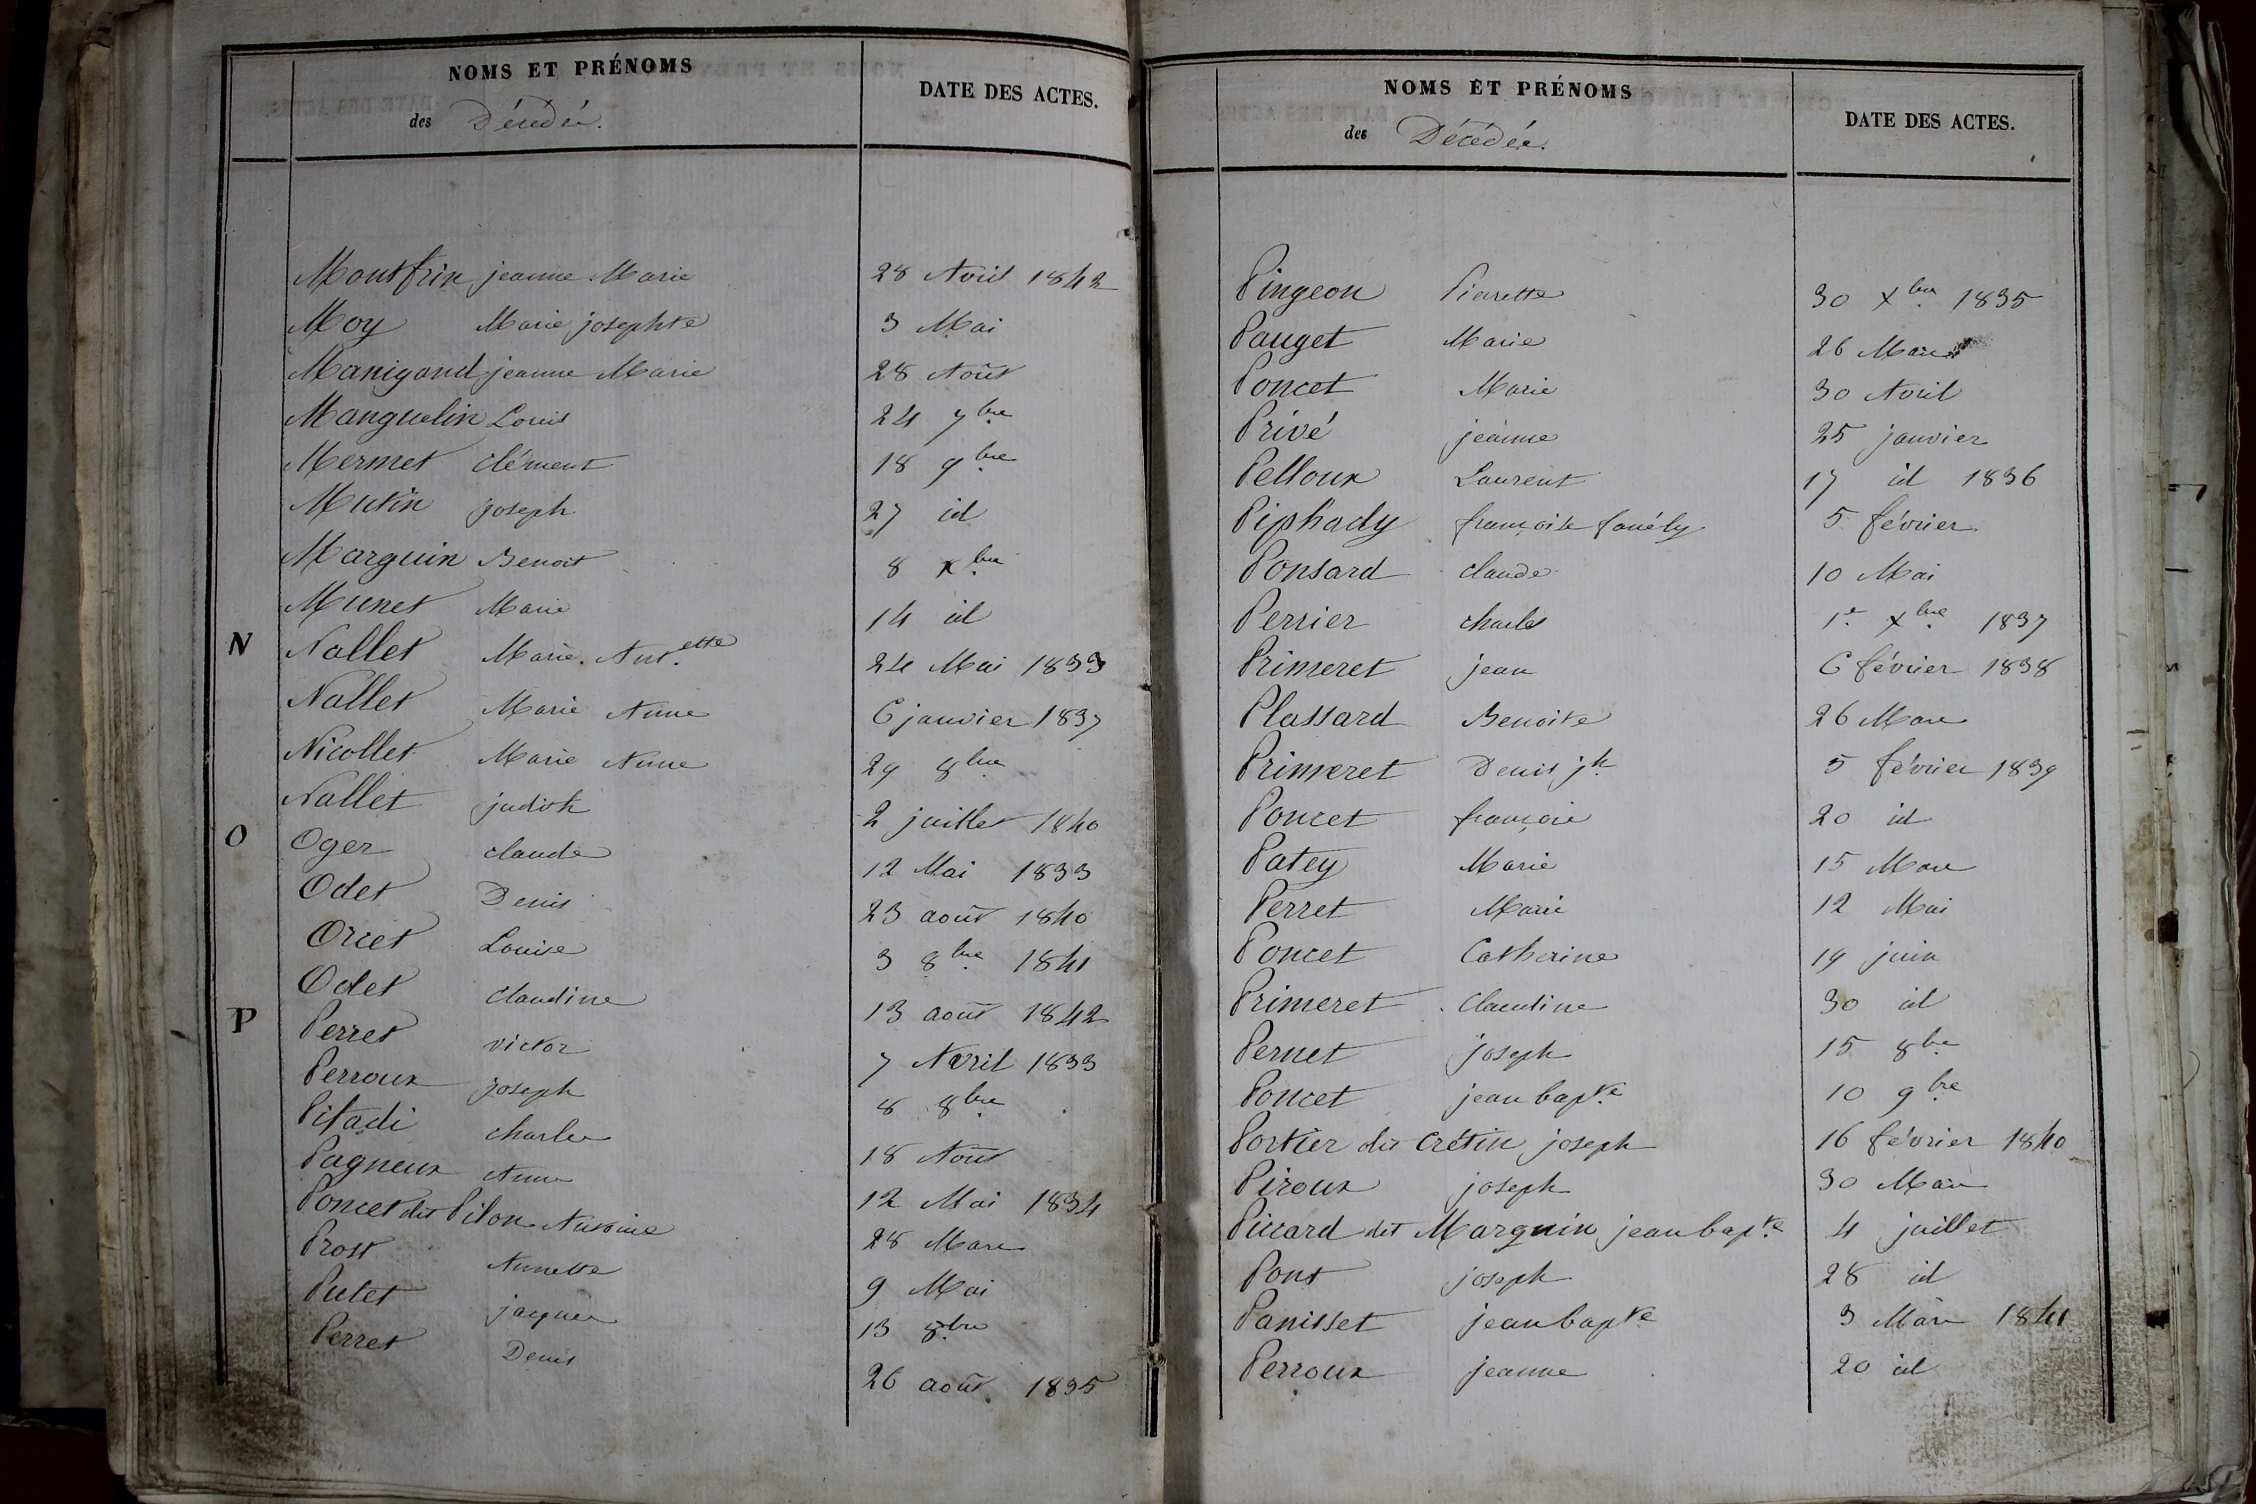 NOMS ET PRÉNOMS
des Décédés.
DATE DES ACTES.
Montfrin jeanne Marie 28 Avril 1842
Moy Marie josephte 3 Mai
Manigand jeanne Marie 28 Août
Manguelin Louis 24 7bre
Mermet clément 18 9bre
Mutin joseph 27 id
Marguin Benoit 8 xbre
Munet Marie 14 id
N Nallet Marie Antette 24 Mai 1833
Nallet Marie Anne 6 janvier 1837
Nicollet Marie Anne 29 8bre
Nallet judith 2 juillet 1840
O Oger claude 12 Mai 1833
Odet Denis 23 août 1840
Orcet Louise 3 8bre 1841
Odet claudine 13 août 1842
P Perret victor 7 Avril 1833
Perroux joseph 8 8bre
Pitadi charles 18 Août
Pagneux Anne 12 Mai 1834
Poncet dit Pilon Antoine 28 Mars
Prost Annette 9 Mai
Putet jacques 13 8bre
Perret Denis 26 août 1835
NOMS ET PRÉNOMS
des Décédés.
DATE DES ACTES.
Pingeon Pierrette 30 xbre 1835
Pauget Marie 26 Mars
Poncet Marie 30 Avril
Privé jeanne 25 janvier
Pelloux Laurent 17 id 1836
Piphady françoise 5 février
Ponsard claude 10 Mai
Perrier charles 1er xbre 1837
Primeret jean 6 février 1838
Plassard Benoite 26 Mars
Primeret Denis jh 5 février 1839
Poncet françois 20 id
Patey Marie 15 Mars
Perret Marie 12 Mai
Poncet Catherine 19 juin
Primeret Claudine 30 id
Pernet joseph 15 8bre
Poncet jean bapte 10 9bre
Portier dit Crétin joseph 16 février 1840
Piroux joseph 30 Mars
Piccard dit Marguin jean bapte 4 juillet
Pont joseph 28 id
Panisset jean bapte 3 Mars 1841
Perroux jeanne 20 id